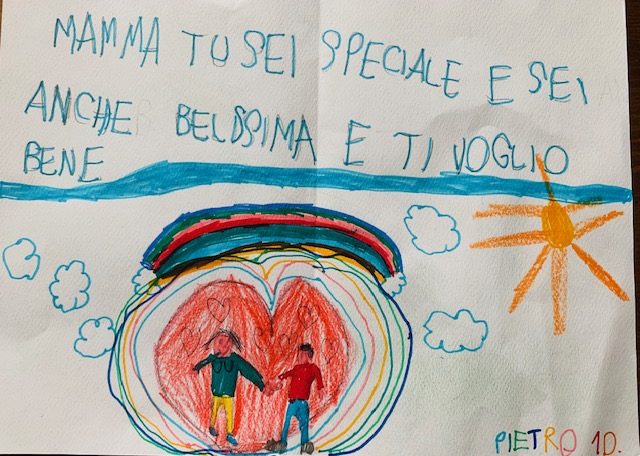 MAMMA TU SEI SPECIALE E SEI
ANCHE BELSSIMA E TI VOGLIO
BENE
PIETRO 1D.